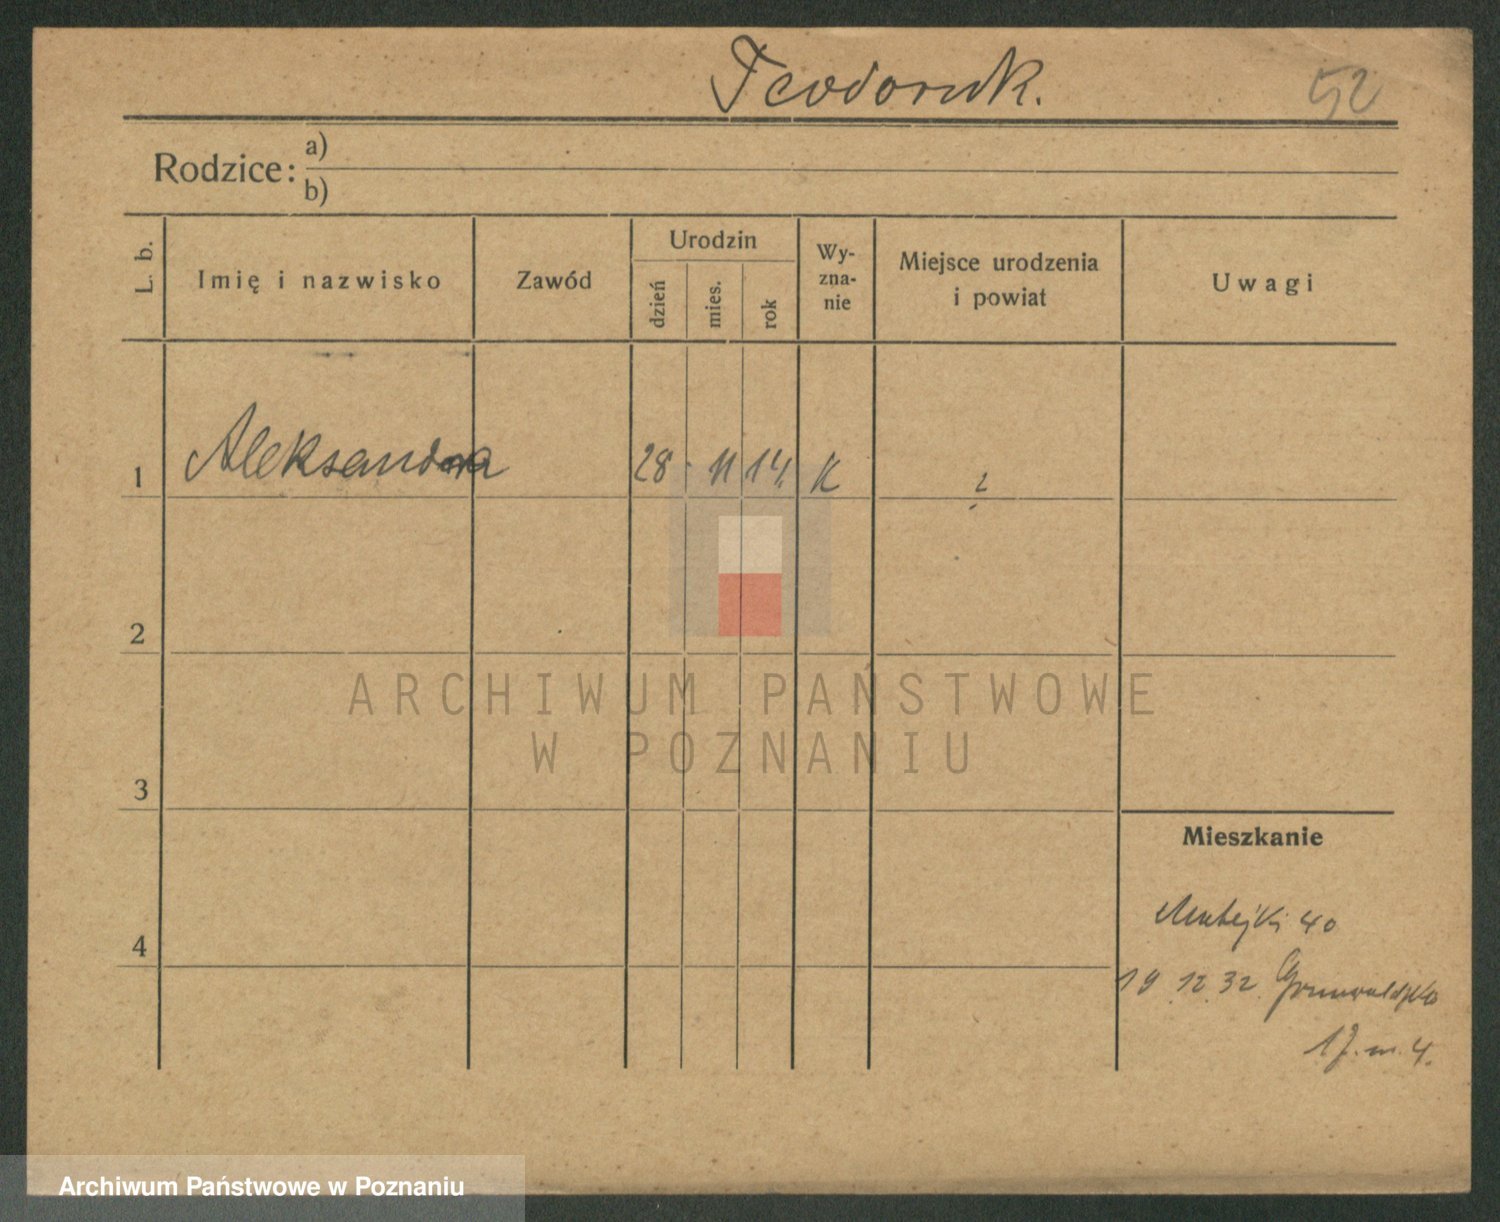 Teodoruk.
52
Rodzice: a)
b)
L. b.
Imię i nazwisko
Zawód
Urodzin
dzień
mies.
rok
Wy-
zna-
nie
Miejsce urodzenia
i powiat
Uwagi
1 Aleksandra 28 11 14. K ?
2
ARCHIWUM PAŃSTWOWE
W POZNANIU
3
Mieszkanie
4
Matejki 40
19.12.32. Grunwaldzka
17. m. 4.
Archiwum Państwowe w Poznaniu